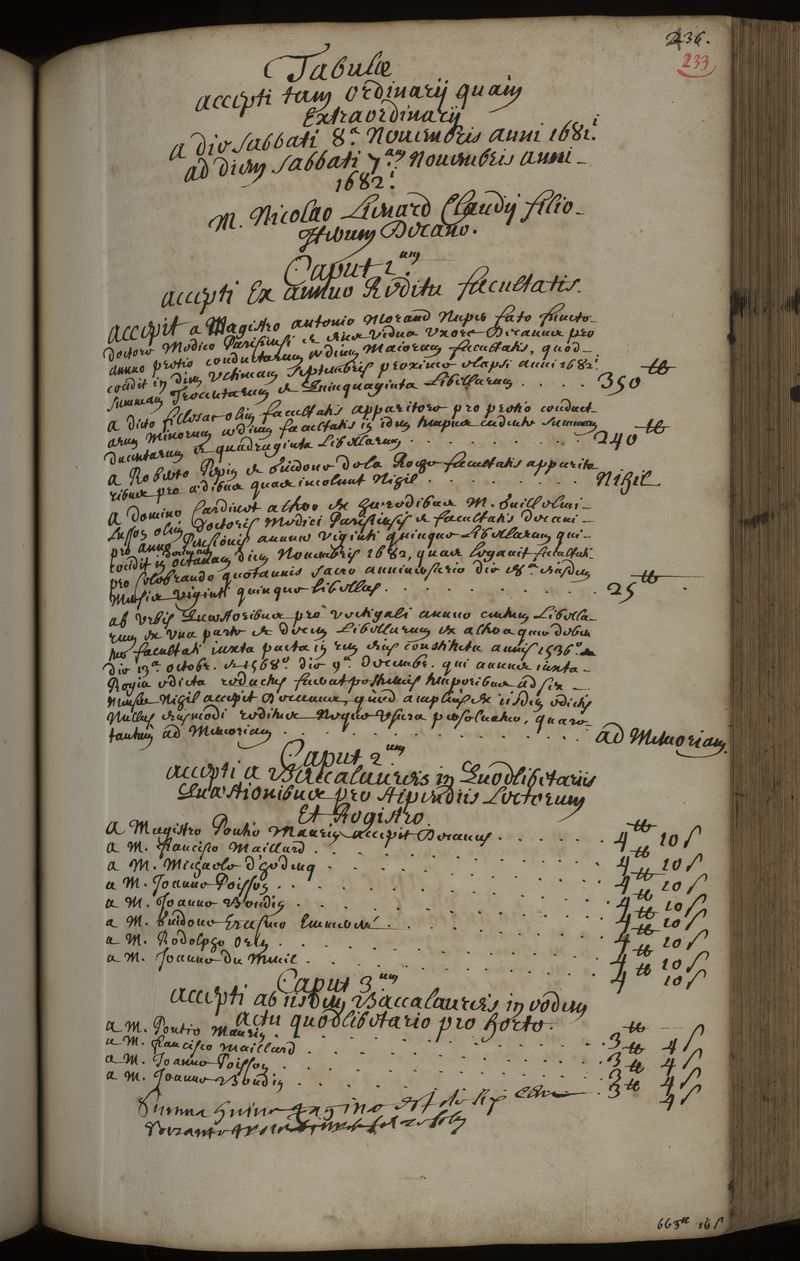 236.
233
Tabulæ
accepti tam ordinarij quam
Extraordinarij
a die sabbati 8.ª Nouembris anni 1681.i
ad diem sabbati 7.am Nouembris anni
1682.i
M. Nicolao Lienard Claudij filio
Iterum Decano.
Caput 1.um
accepti Ex annuo Reditu facultatis.
accepit a Magistro antonio Morand Nuper fato functo
Doctore Medico Parisiensi et eius Vidua Uxore Decanus pro
annuo pretio conductarum ædium Maiorum facultatis, quod
cecidit in diem Ultimam septembris proxime elapsi anni 1682.i
summam Trecentarum et Quinquaginta Libellarum . . . . 350 ₶
a dicto fillesac olim facultatis apparitore pro pretio conduct
arum Minorum ædium facultatis in idem tempus cadente summam
Ducentarum et quadraginta Libellarum . . . . . . . . 240 ₶
a Roberto Pepin et Guidone de la Roge facultatis apparito
ribus pro ædibus quas incolunt Nigil . . . . . . . . Nigil
a Domino Cardinet altero ex hæredibus M. Guillelmi
Lussos olim Doctoris Medici Parisiensis et facultatis Decani
pro anno Pensionis annuæ Viginti quinque Libellarum qui
cecidit in octauam diem Nouembris 1682, quas legauit facultati
pro celebrando quotannis sacro anniuersario die 18.ª eiusdem
Mensis Viginti quinque Libellas . . . . . . . . . 25 ₶
ab Urbis Quæstoribus pro Vectigali annuo centum Libella
rum ex una parte et decem Libellarum ex altera quæ debe
tur facultati iuxta pacta in rem eius constituta annis 1536.o
die 13.ª octobr. et 1568.o die 9.ª Decembr. qui annuus iuxta
Regia edicta reductus fuerat postremis temporibus ad sex
Menses Nigil accepit Decanus, quod amplius ex iisdem edictis
Nullus eiusmodi reditus Neque Usura persoluatur, quare
tantum ad Memoriam . . . . . . . . . . ad Memoriam
Caput 2.um
accepti a Baccalaureis in Quodlibetariis
Quæstionibus pro stipendiis Lectorum
Et Registro.
a Magistro Pontio Maurin accepit Decanus . . . . . 4 ₶ 10 s
a M. francisco Maillard . . . . 4 ₶ 10 s
a M. Micaele d'goding . . . . 4 ₶ 10 s
a M. Joanne Poisson . . . . 4 ₶ 10 s
a M. Joanne Boudin . . . . 4 ₶ 10 s
a M. Guidone Erasmo . . . . 4 ₶ 10 s
a M. Rodolpho . . . . 4 ₶ 10 s
a M. Joanne du Mesnil . . . . 4 ₶ 10 s
Caput 3.um
accepti ab iisdem Baccalaureis in eodem
actu quodlibetario pro horto.
a M. Pontio Maurin . . . . 3 ₶ 4 s
a M. francisco Maillard . . . . 3 ₶ 4 s
a M. Joanne Poisson . . . . 3 ₶ 4 s
a M. Joanne Boudin . . . . 3 ₶ 4 s
Summa huius paginæ est
663 ₶ 16 s